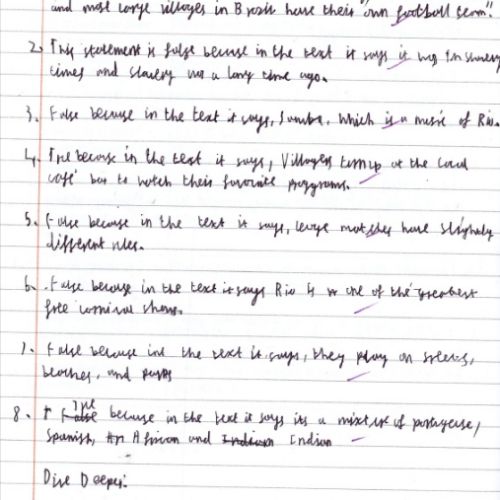 and most large villages in Brasil have their "own football team".
2. This statement is false becuse in the text it says it was in slavery
times and slavery was a long time ago.
3. False because in the text it says, Samba, which is a music of Rio.
4. True becouse in the text it says, Villagers turn up at the local
café bar to watch their favorite programs.
5. False because in the text it says, large matches have slightly
different rules.
6. False because in the text it says Rio is one of the greatest
free carnival shows.
7. False because in the text it says, they play on streets,
beaches, and
8. True False because in the text it says its a mixture of portugese,
Spanish, African and Indian Indian
Dive Deeper: